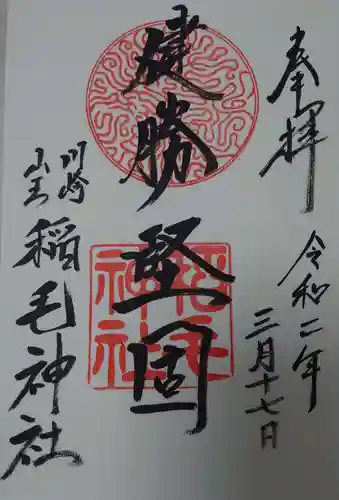 奉拝
令和二年
三月十七日
健勝
堅固
稲毛神社
川崎
山王
稲毛神社